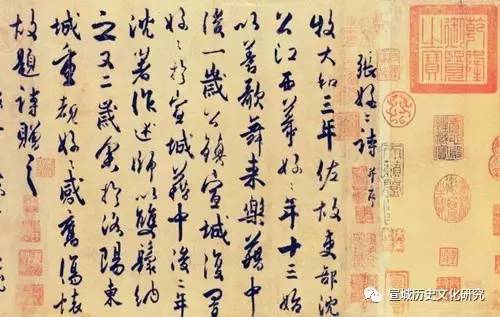 乾隆御覽之寶
張好〻詩 并序
牧大和三年佐故吏部沈
公江西幕好〻年十三始
以善歌舞來樂籍中
後一歲公鎮宣城復置
好〻於宣城籍中後二年
沈著作述師以雙鬟納
之又二歲余於洛陽東
城重覩好〻感舊傷懷
故題詩贈之
宣城历史文化研究